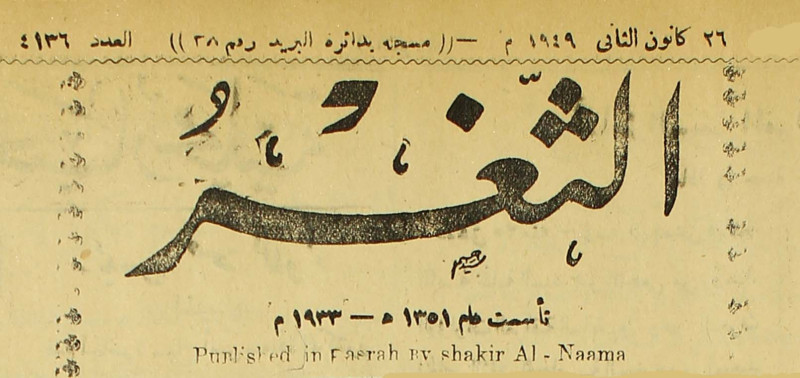 ٢٦ كانون الثاني ١٩٤٩ م — ((مسجله بدائرة البريد رقم ٢٨)) العدد ٤١٣٦
الثَّغْرُ
تأسست عام ١٣٥١ ه — ١٩٣٣ م
Published in Basrah By shakir Al - Naama